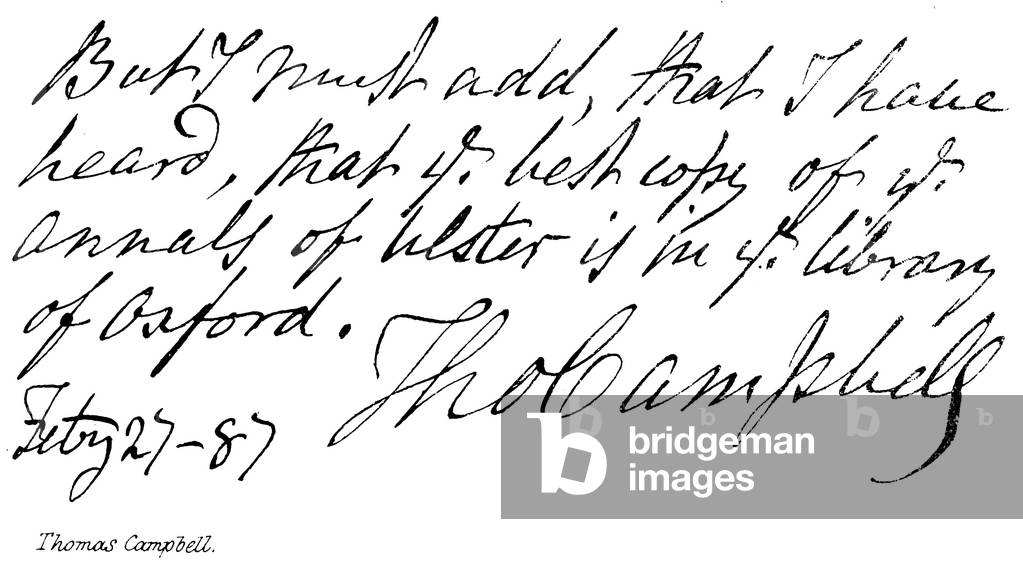 But I must add, that I have
heard, that ye. best copy of ye.
annals of Ulster is in ye. library
of Oxford.
Tho Campbell
Febry 27-87
bridgeman
images
Thomas Campbell.